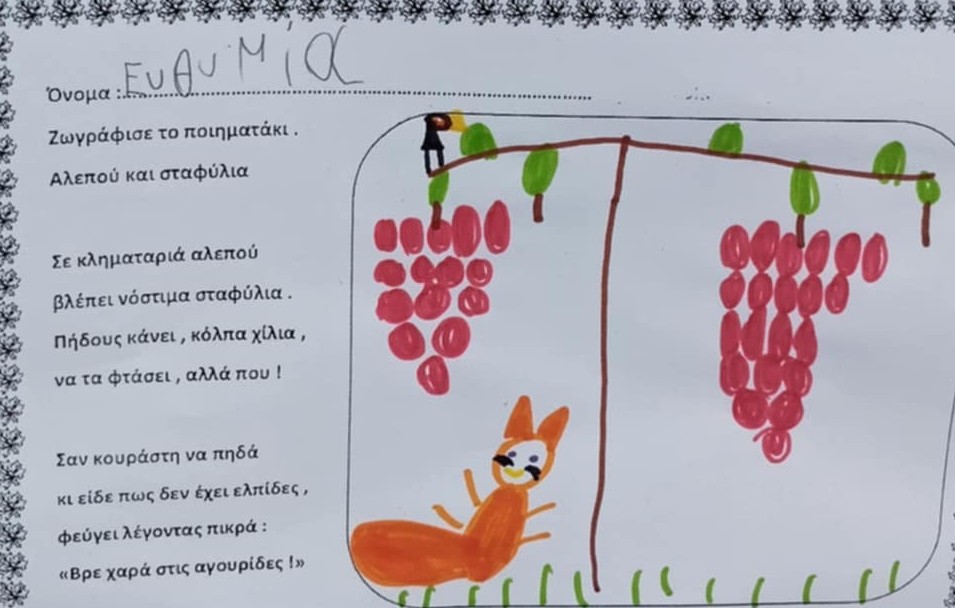 Όνομα : Ευθυμία
Ζωγράφισε το ποιηματάκι .
Αλεπού και σταφύλια
Σε κληματαριά αλεπού
βλέπει νόστιμα σταφύλια .
Πήδους κάνει , κόλπα χίλια ,
να τα φτάσει , αλλά που !
Σαν κουράστη να πηδά
κι είδε πως δεν έχει ελπίδες ,
φεύγει λέγοντας πικρά :
«Βρε χαρά στις αγουρίδες !»